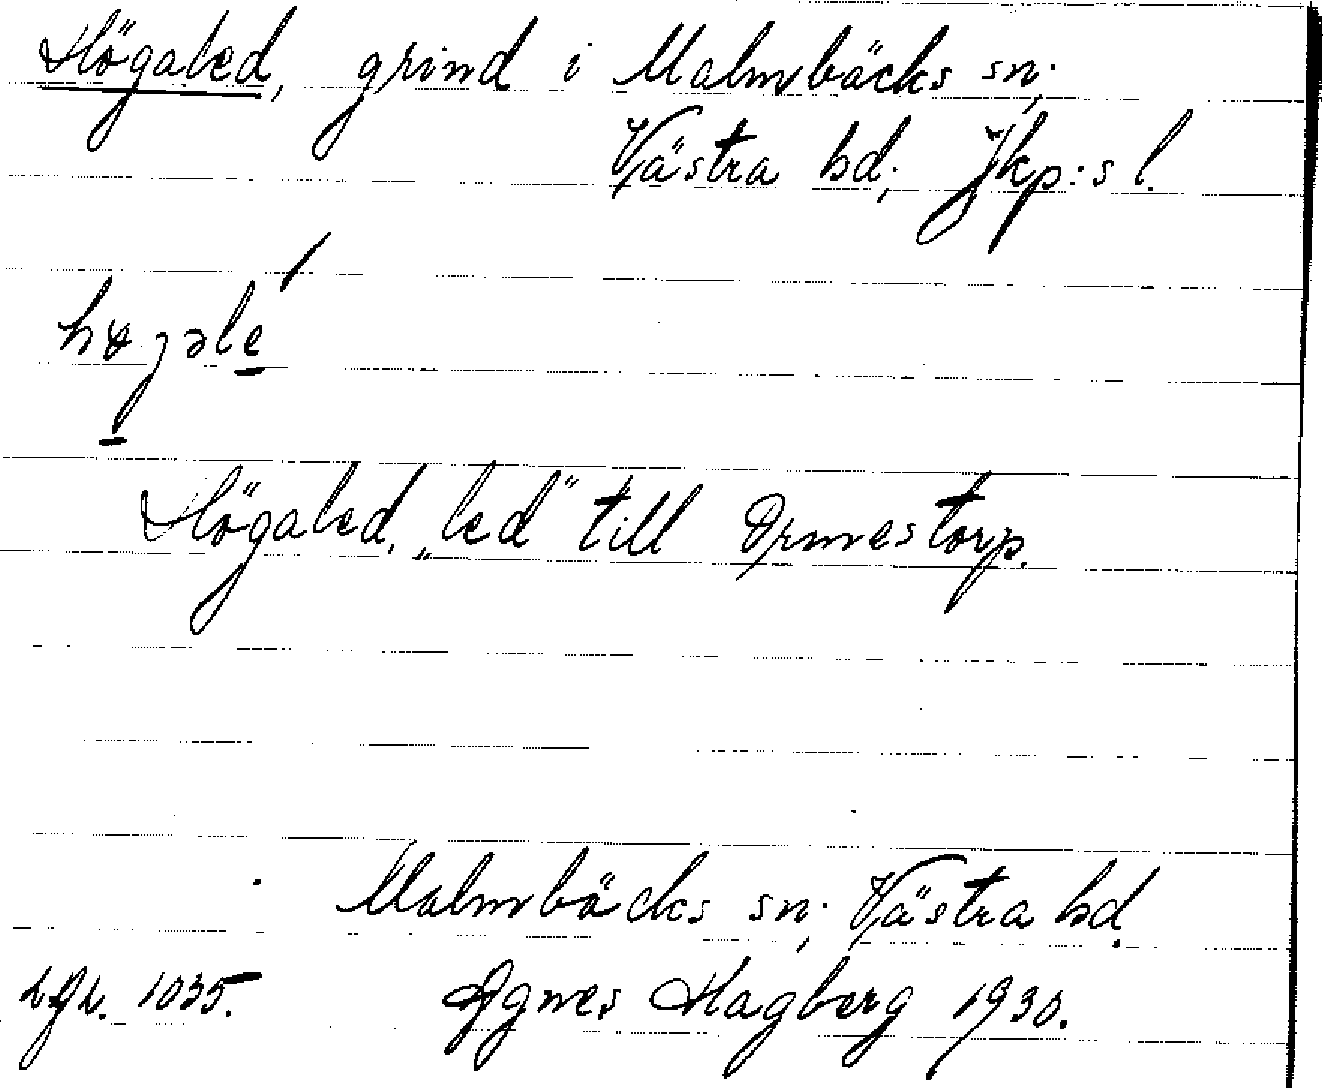 Högaled, grind i Malmbäcks sn;
Västra hd; Jkp:s l.
høgəle
Högaled, „led” till Ormestorp.
Malmbäcks sn; Västra hd.
1035. Agnes Hagberg 1930.